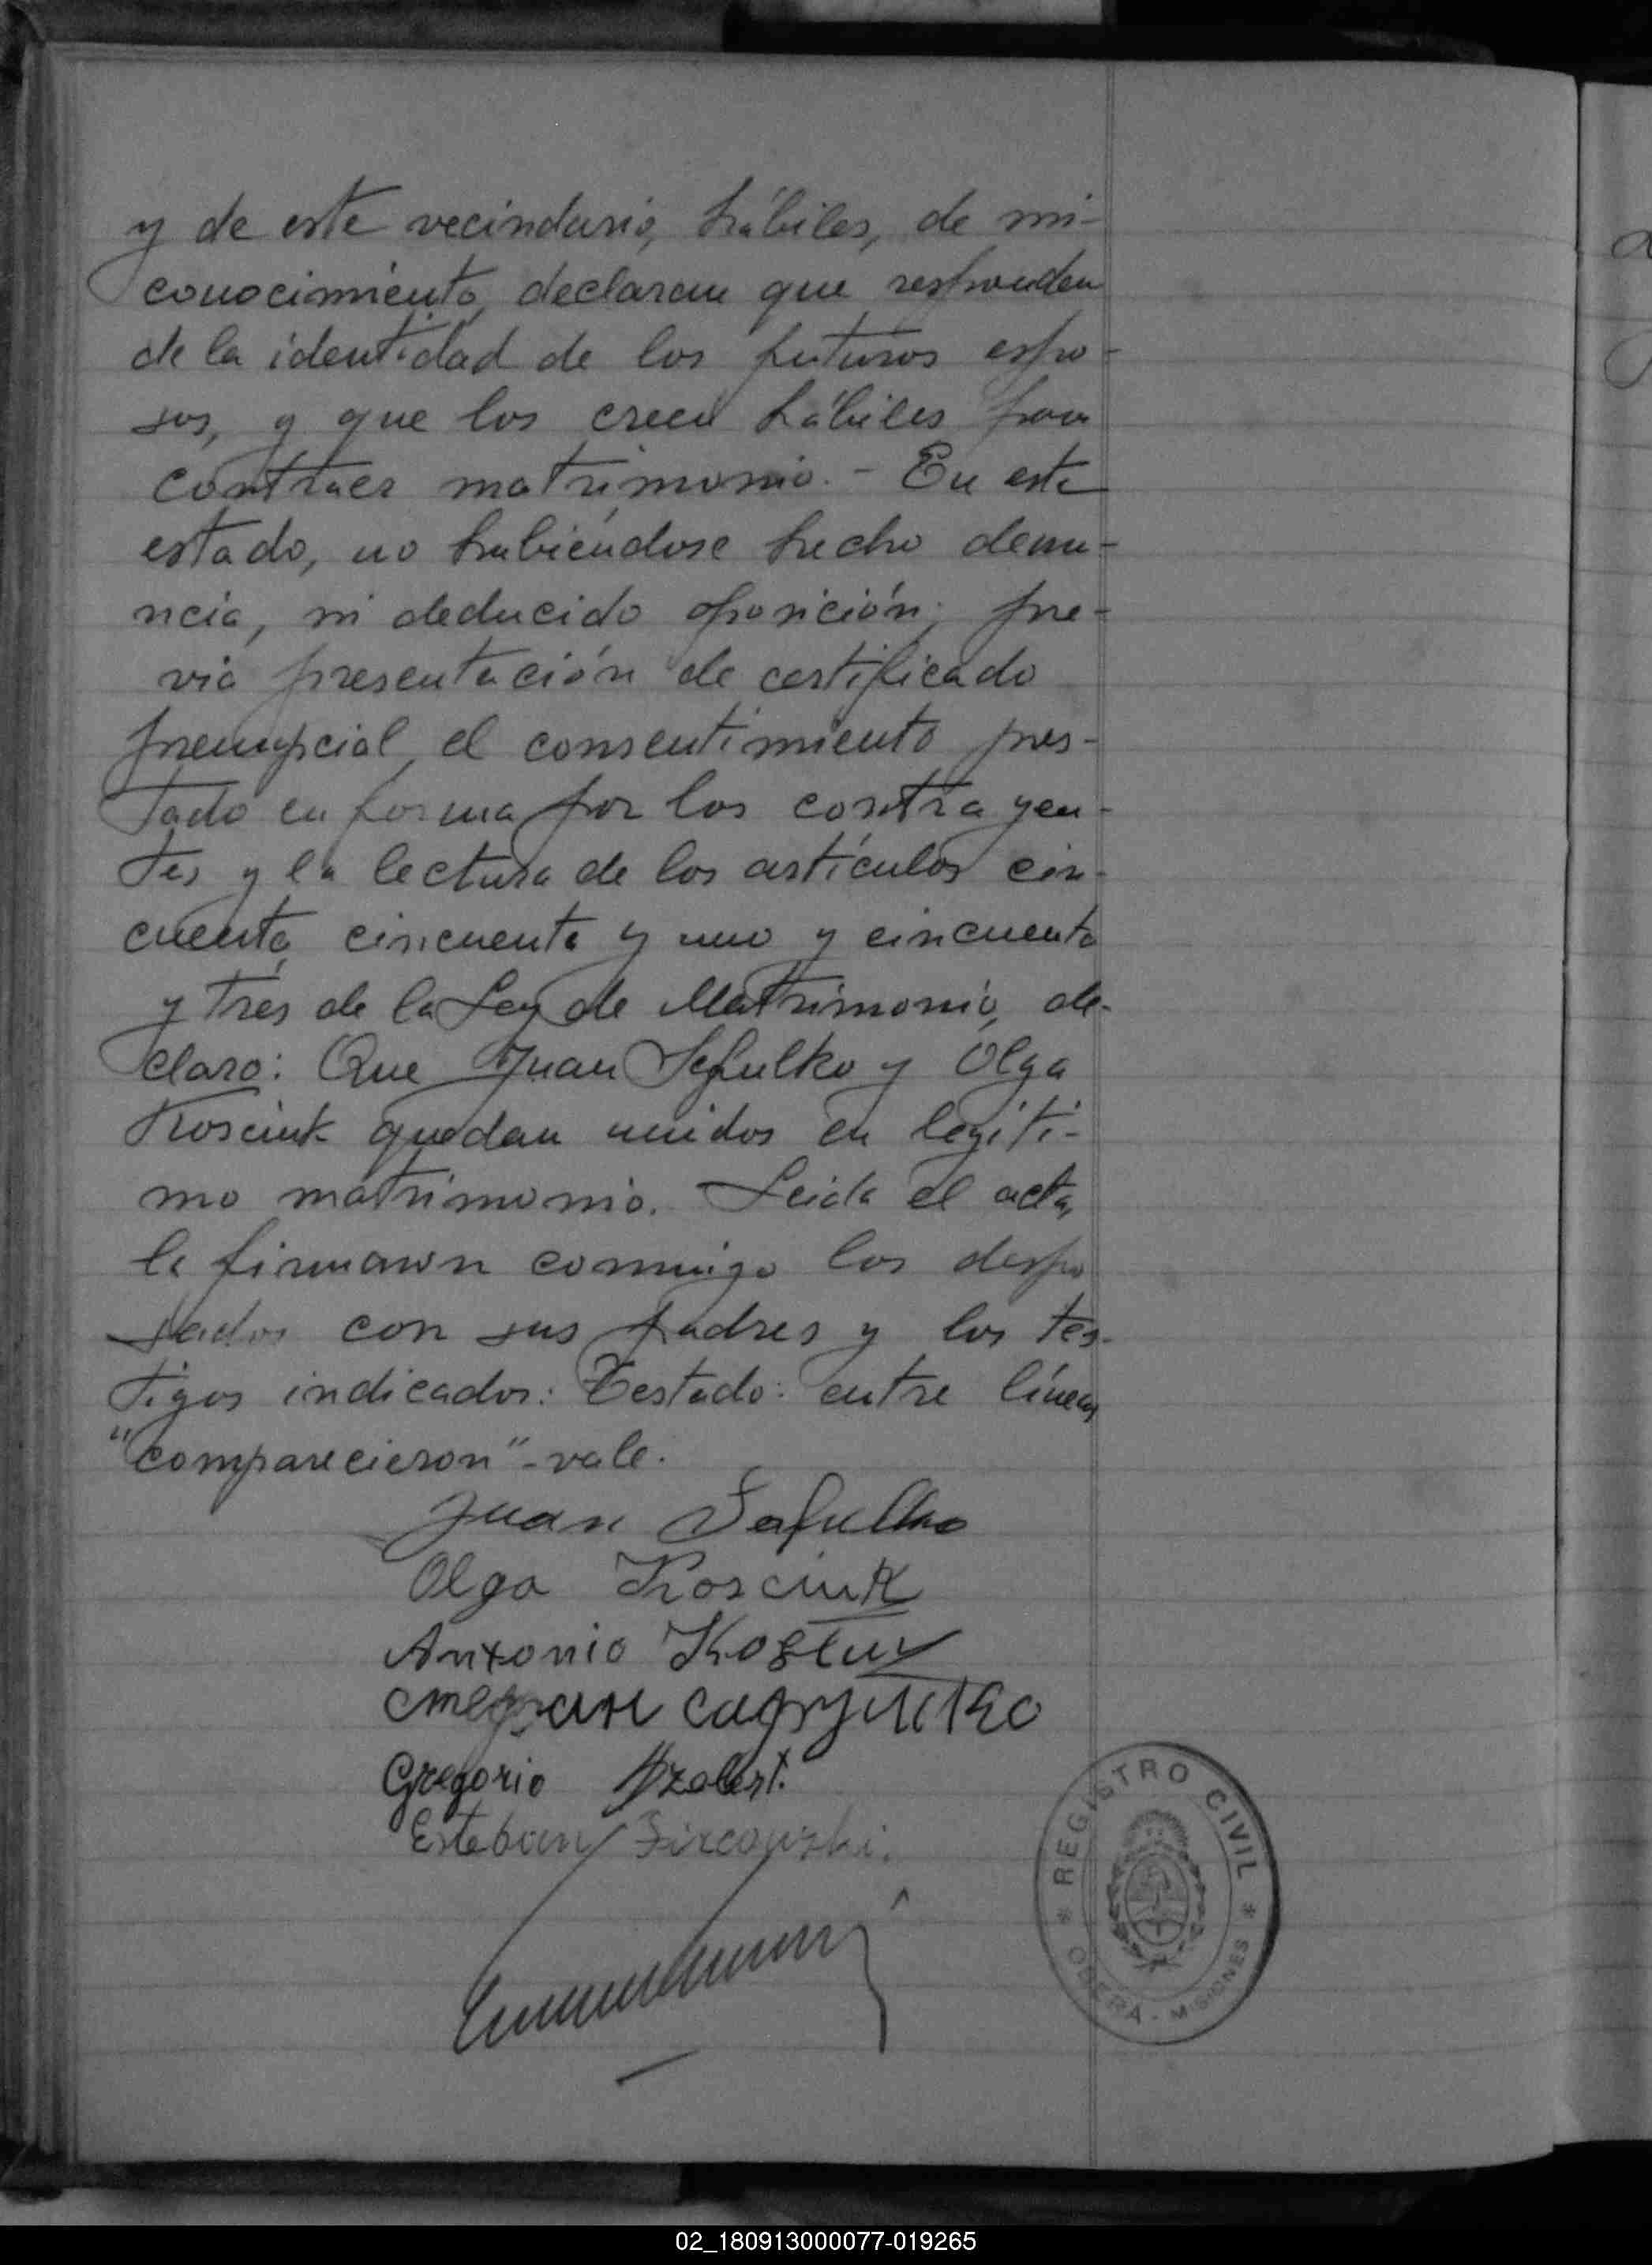 y de este vecindario, hábiles, de mi-
conocimiento, declaran que responden
de la identidad de los futuros espo-
sos, y que los creen hábiles para
contraer matrimonio. - En este
estado, no habiéndose hecho denu-
ncia, ni deducido oposición; pre-
via presentación de certificado
prenupcial, el consentimiento pres-
tado en forma por los contrayen-
tes y la lectura de los artículos cin-
cuenta, cincuenta y uno y cincuenta
y tres de la Ley de Matrimonio, de-
claro: Que Juan Sapulko y Olga
Kosciuk quedan unidos en legíti-
mo matrimonio. Leida el acta,
la firmaron conmigo los despo
sados con sus padres y los tes-
tigos indicados: Testado: entre líneas
"comparecieron" - vale.
Juan Sapulko
Olga Kosciuk
Antonio
Стефан
Gregorio
Esteban
REGISTRO CIVIL
OBERA - MISIONES
02_180913000077-019265